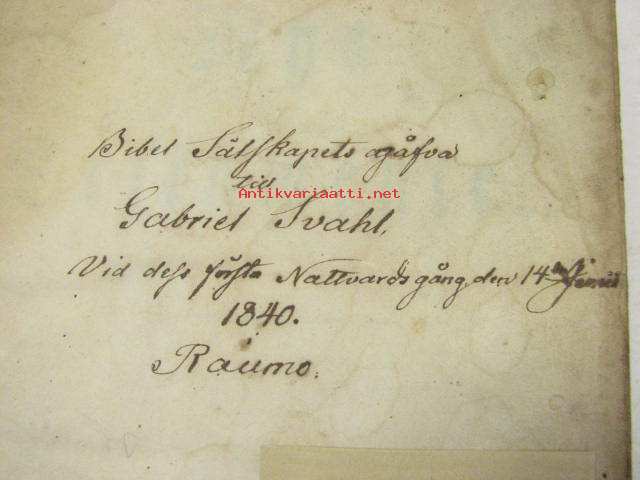 Bibel Sälskapets gåfva
till
Antikvariaatti.net
Gabriel Svahl,
Vid dess första Nattvards gång, den 14de Junii
1840.
Raumo.